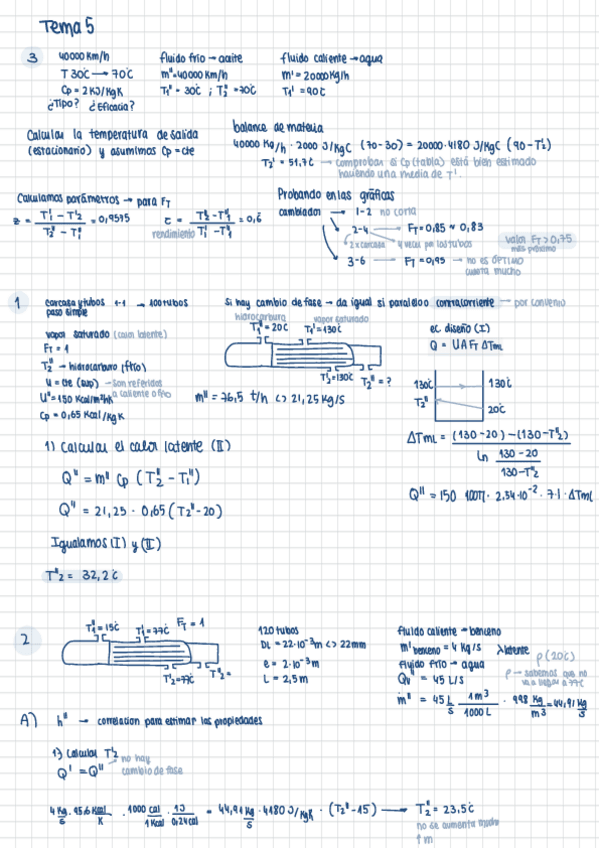 Tema 5
3
40000 Km/h
T 30°C → 70°C
Cp = 2 KJ/KgK
¿Tipo? ¿Eficacia?
fluido frío → aceite
m" = 40000 Km/h
T1" = 30°C ; T2" = 70°C
fluido caliente → agua
m' = 20000 Kg/h
T1' = 90°C
Calcular la temperatura de salida
(estacionario) y asumimos Cp = cte
balance de materia
40000 Kg/h · 2000 J/KgC (70-30) = 20000 · 4180 J/KgC (90-T2')
T2' = 51,7°C → comprobar si Cp (tabla) está bien estimado
haciendo una media de T'.
Calculamos parámetros → para FT
z = T1' - T2' / T2" - T1" = 0,9575
ε = T2" - T1" / T1' - T1" = 0,6
rendimiento
Probando en las gráficas
cambiador → 1-2 no corta
2-4 → FT = 0,85 ≈ 0,83
2 x carcasa 4 veces por los tubos
valor FT > 0,75
más próximo
3-6 → FT = 0,95 → no es óptimo
cuesta mucho
1
carcasa y tubos 1-1 → 100 tubos
paso simple
vapor saturado (calor latente)
FT = 1
T2" → hidrocarburo (frío)
U = cte (sup) → son referidas
a caliente o frío
U" = 150 Kcal/m²hK
Cp = 0,65 Kcal/KgK
Si hay cambio de fase → da igual si paralelo o contracorriente → por convenio
hidrocarburo vapor saturado
T1" = 20C T1' = 130°C
T2' = 130°C T2" = ?
m" = 76,5 t/h <> 21,25 Kg/s
ec diseño (I)
Q = UAFT ΔTmL
130°C 130°C
T2" 20°C
ΔTmL = (130-20) - (130-T2") / ln 130-20 / 130-T2"
Q" = 150 · 100π · 2,54·10⁻² · 7,1 · ΔTmL
1) Calcular el calor latente (II)
Q" = m" Cp (T2" - T1")
Q" = 21,25 · 0,65 (T2" - 20)
Igualamos (I) y (II)
T"2 = 32,2°C
2
T1" = 15°C T1' = 77°C FT = 1
T2' = 77°C T2" =
120 tubos
DL = 22·10⁻³ m <> 22mm
e = 2·10⁻³ m
L = 2,5 m
fluido caliente → benceno
m' benceno = 4 Kg/s λ latente
fluido frío → agua
Qv" = 45 L/s
ρ (20°C)
ρ → sabemos que no
va a llegar a 77°C
m" = 45 L/s · 1 m³/1000 L · 998 Kg/m³ = 44,91 Kg/s
A) h" → correlacion para estimar las propiedades
1) Calcular T2" → no hay
cambio de fase
Q' = Q"
4 Kg/s · 95,6 Kcal/K · 1000 cal/1 Kcal · 1J/0,24 cal = 44,91 Kg/s · 4180 J/KgK · (T2" - 15) → T2" = 23,5°C
no se aumenta mucho
↑ m